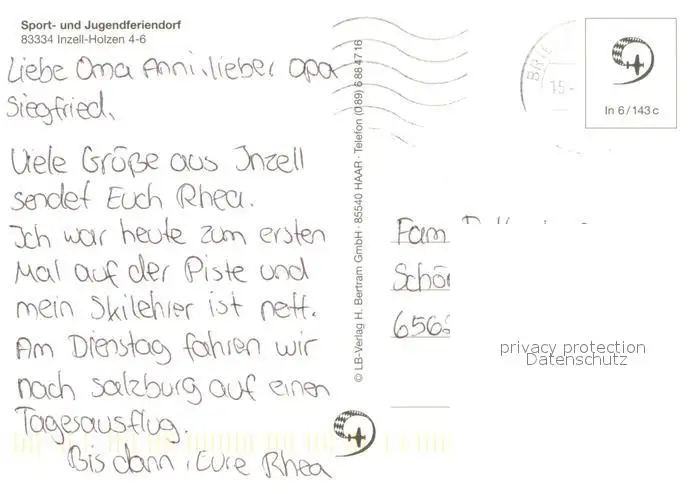 Sport- und Jugendferiendorf
83334 Inzell-Holzen 4-6
Liebe Oma Anni, lieber Opa
Siegfried,
Viele Grüße aus Inzell
sendet Euch Rhea.
Ich war heute zum ersten
Mal auf der Piste und
mein Skilehrer ist nett.
Am Dienstag fahren wir
nach Salzburg auf einen
Tagesausflug.
Bis dann, Eure Rhea
© LB-Verlag H. Bertram GmbH · 85540 HAAR · Telefon (089) 6 88 47 16
BRIE
15.-
In 6/143 c
Fam
Schö
656
privacy protection
Datenschutz